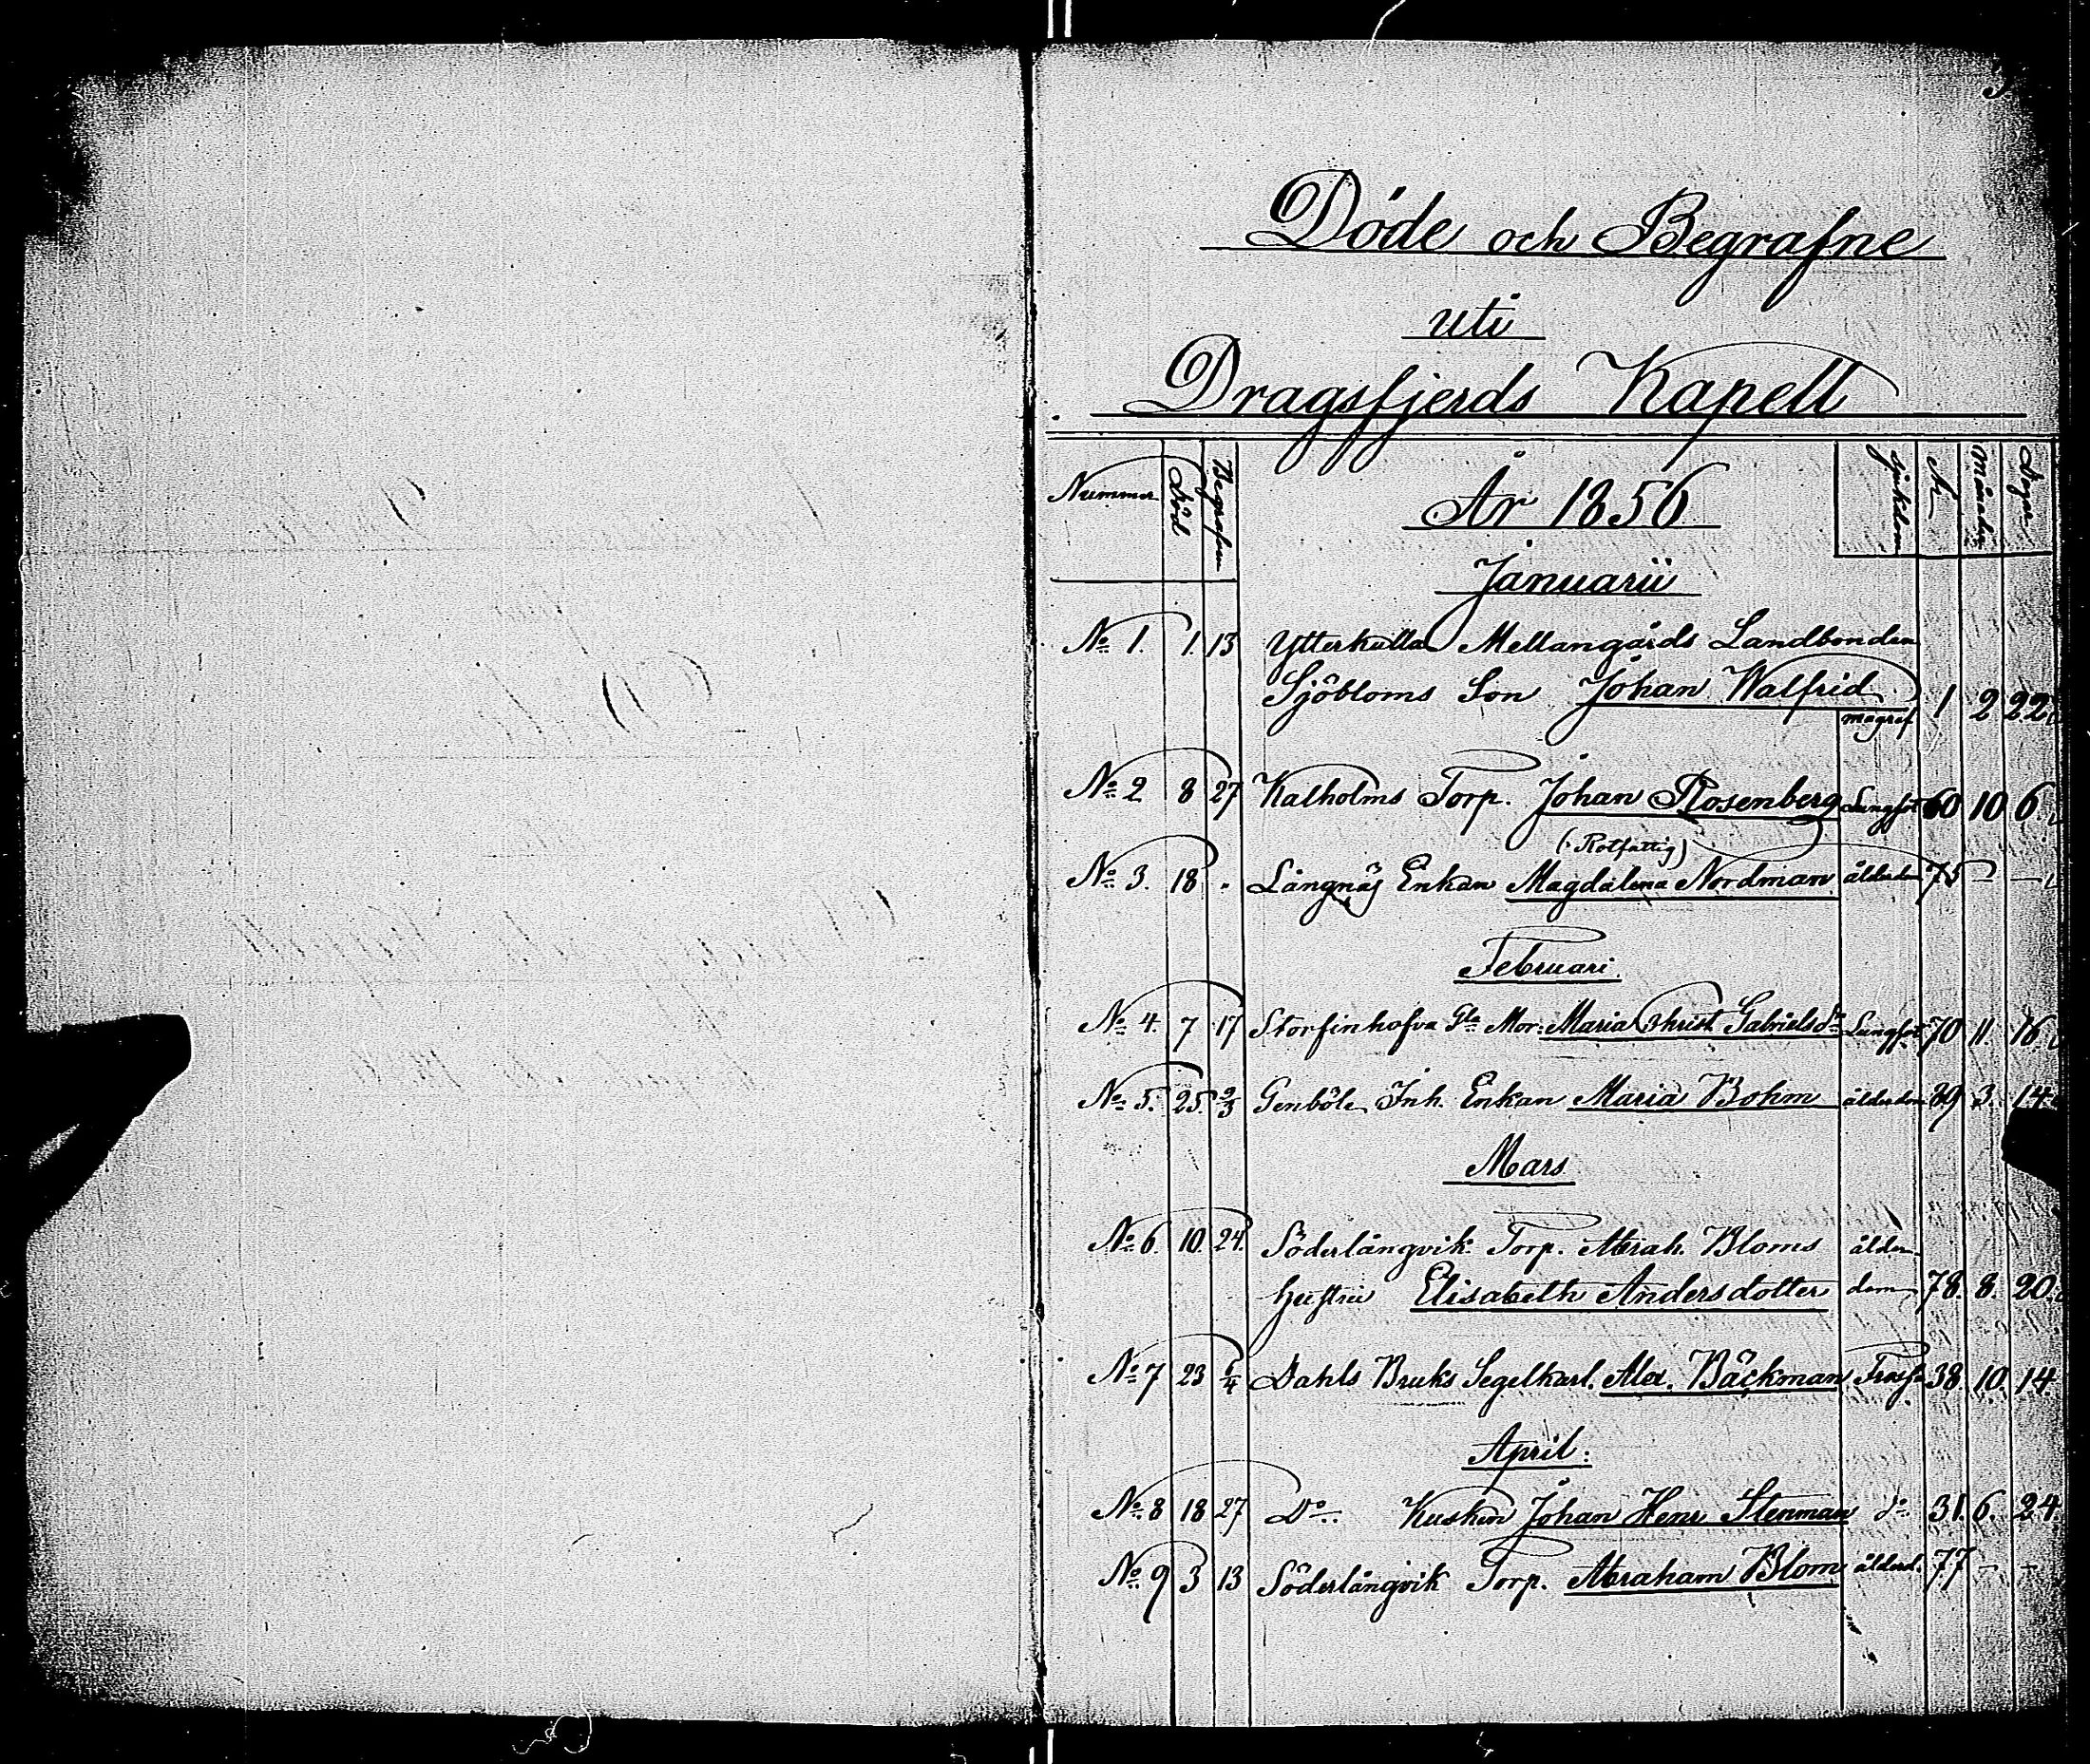 Döde och Begrafne
uti
Dragsfjerds Kapell
Nummer Död Begrafven År 1856 Sjukdom År Månader Dagar
Januarii
No 1. 1. 13 Ytterkulla Mellangårds Landbonden
Sjöbloms Son Johan Walfrid 1 2 22
magref.
No 2 8 27 Kalholms Torp. Johan Rosenberg Lungsot 60 10 6.
(Rotfattig)
No 3. 18 " Långnäs Enkan Magdalena Nordman ålderdom 75 — —
Februari.
No 4. 7 17 Storfinhofva Gla Mor. Maria Christ. Gabrielsdr Lungsot 70 11. 16.
No 5. 25. 2/3 Genböle Inh. Enkan Maria Bohm ålderdom 89 3. 14
Mars
No 6. 10. 24. Söderlångvik Torp. Abrah. Bloms ålder-
hustru Elisabeth Andersdotter dom 78. 8. 20.
No 7 23 6/4 Dahls Bruks Segelkarl. Alex. Bäckman 38 10. 14
April.
No 8 18 27 Do Kusken Johan Henr Stenman do 31. 6. 24.
No 9 3 13 Söderlångvik Torp. Abraham Blom ålderd. 77 — —